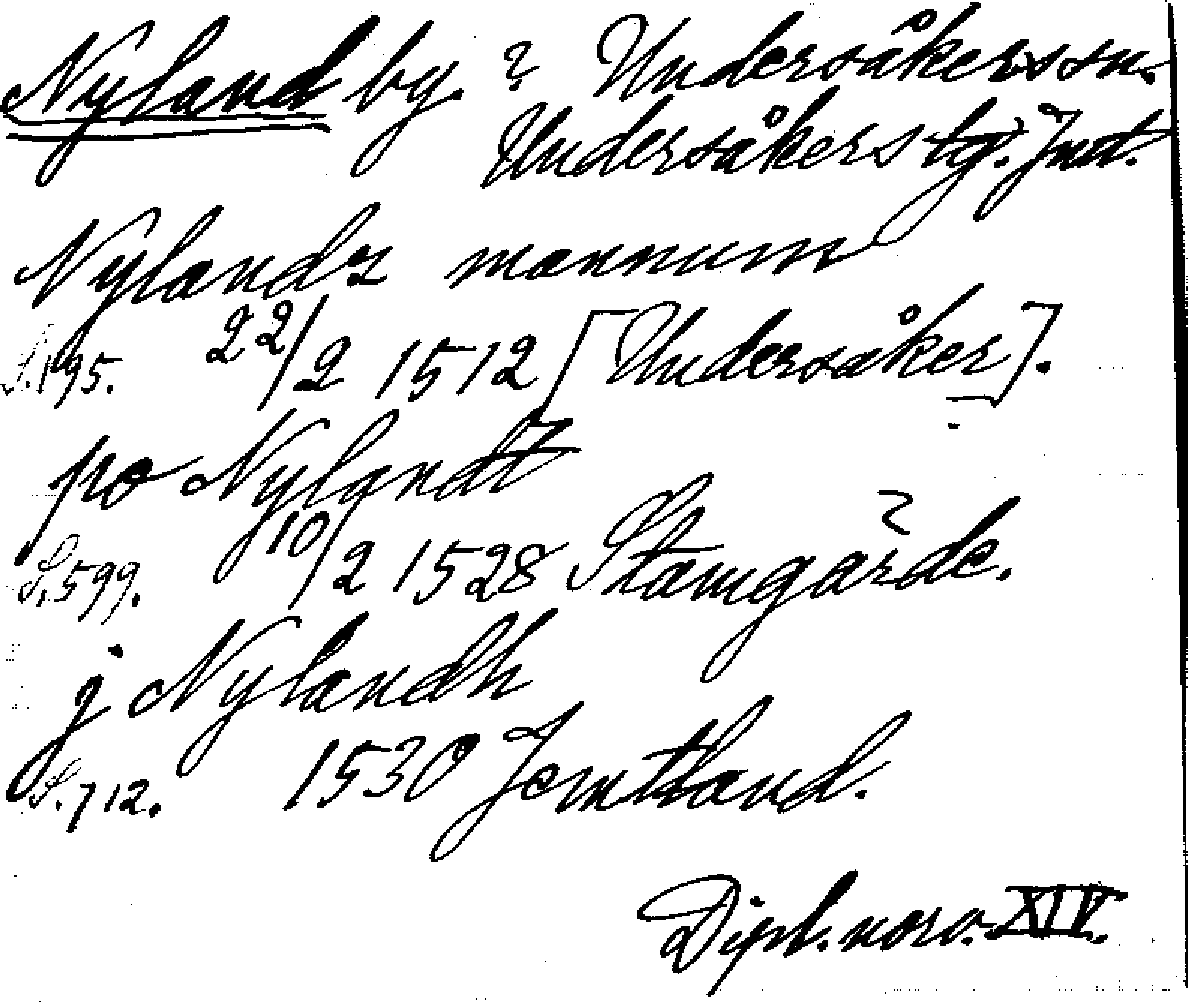 Nyland by. ? Undersåkers sn.
Undersåkers tg. Jmt.
Nylandz mannum
S. 195. 22/2 1512 [Undersåker].
po Nylandt
S. 599. 10/2 1528 Stamgärde.
j Nylandh
S. 712. 1530 Jemtland.
Dipl. norv. XIV.